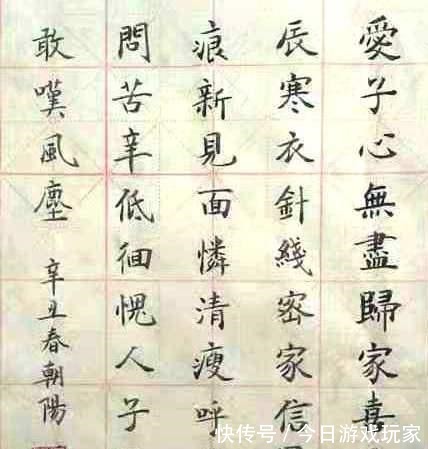 愛子心無盡歸家喜
辰寒衣針綫密家信
痕新見面憐清瘦呼
問苦辛低徊愧人子
敢嘆風塵
辛丑春朝陽
快传号/今日游戏玩家